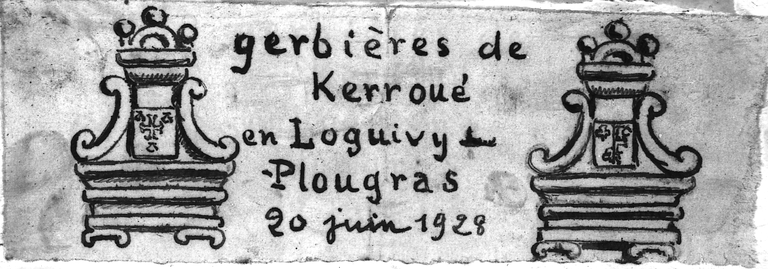 gerbières de
Kerroué
en Loguivy-
-Plougras
20 juin 1928